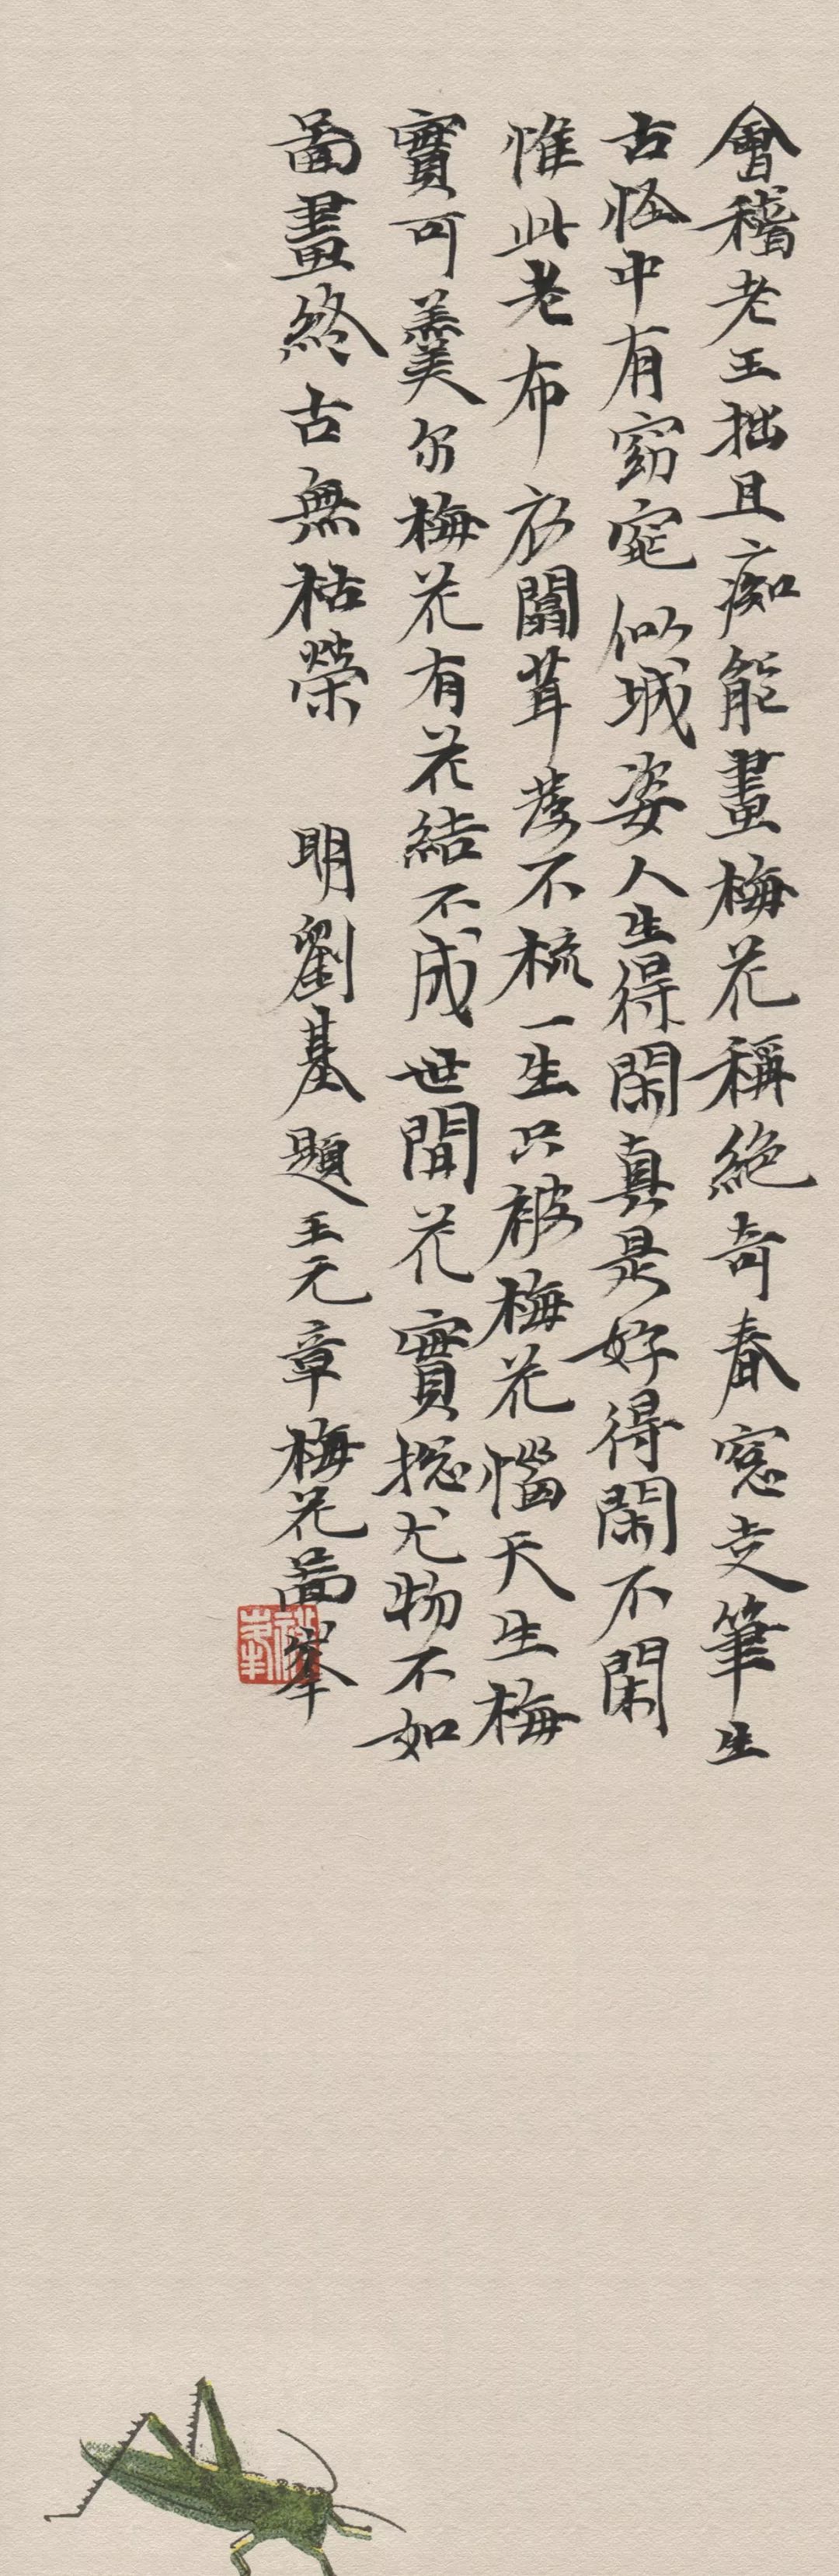 會稽老王拙且痴能畫梅花稱絶奇春窓走筆生
古怪中有窈窕似城姿人生得閑真是好得閑不閑
惟此老布衣闒茸髮不梳一生只被梅花惱天生梅
實可羹尔梅花有花結不成世間花實揔尤物不如
啚畫終古無枯榮 明劉基題王元章梅花啚峯